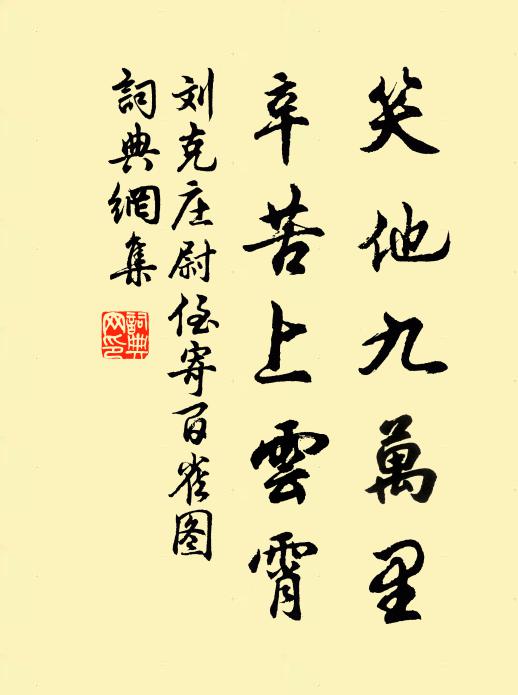 笑他九萬里
辛苦上雲霄
刘克庄尉侄寄百雀图
詞典網集
詞典网印